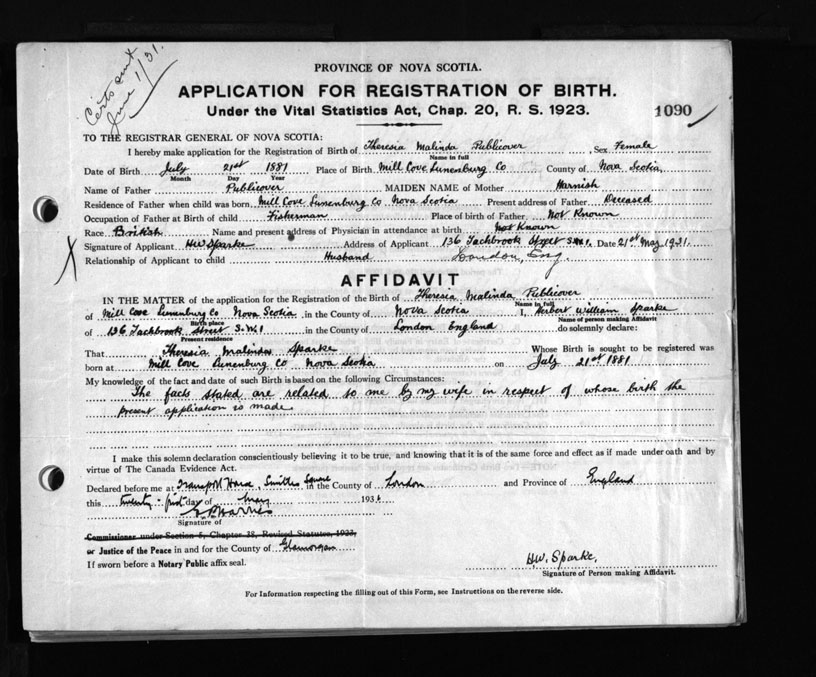 Certs sent
June 1/31.
PROVINCE OF NOVA SCOTIA.
APPLICATION FOR REGISTRATION OF BIRTH.
Under the Vital Statistics Act, Chap. 20, R. S. 1923.
1090
TO THE REGISTRAR GENERAL OF NOVA SCOTIA:
I hereby make application for the Registration of Birth of Theresia Malinda Publicover Sex Female
Name in full
Date of Birth July 21st 1881 Place of Birth Mill Cove Lunenburg Co County of Nova Scotia
Month Day Year
Name of Father Publicover MAIDEN NAME of Mother Harnish
Residence of Father when child was born Mill Cove Lunenburg Co Nova Scotia Present address of Father Deceased
Occupation of Father at Birth of child Fisherman Place of birth of Father Not Known
Race British Name and present address of Physician in attendance at birth Not Known
Signature of Applicant H W Sparke Address of Applicant 136 Tachbrook Street S.W.1. Date 21st May 1931.
Relationship of Applicant to child Husband London, Eng.
X
AFFIDAVIT
IN THE MATTER of the application for the Registration of the Birth of Theresia Malinda Publicover
Name in full
of Mill Cove Lunenburg Co Nova Scotia in the County of Nova Scotia I, Herbert William Sparke
Birth place Name of person making Affidavit
of 136 Tachbrook Street S.W.1 in the County of London England do solemnly declare:
Present residence
That Theresia Malinda Sparke Whose Birth is sought to be registered was
born at Mill Cove Lunenburg Co Nova Scotia on July 21st 1881
My knowledge of the fact and date of such Birth is based on the following Circumstances:
The facts stated are related to me by my wife in respect of whose birth the
present application is made
I make this solemn declaration conscientiously believing it to be true, and knowing that it is of the same force and effect as if made under oath and by
virtue of The Canada Evidence Act.
Declared before me at Transport House, Smith Square in the County of London and Province of England
this twenty-first day of May 1931
Signature of
Commissioner under Section 5, Chapter 38, Revised Statutes, 1923,
or Justice of the Peace in and for the County of Glamorgan
If sworn before a Notary Public affix seal.
H W. Sparke,
Signature of Person making Affidavit.
For Information respecting the filling out of this Form, see Instructions on the reverse side.